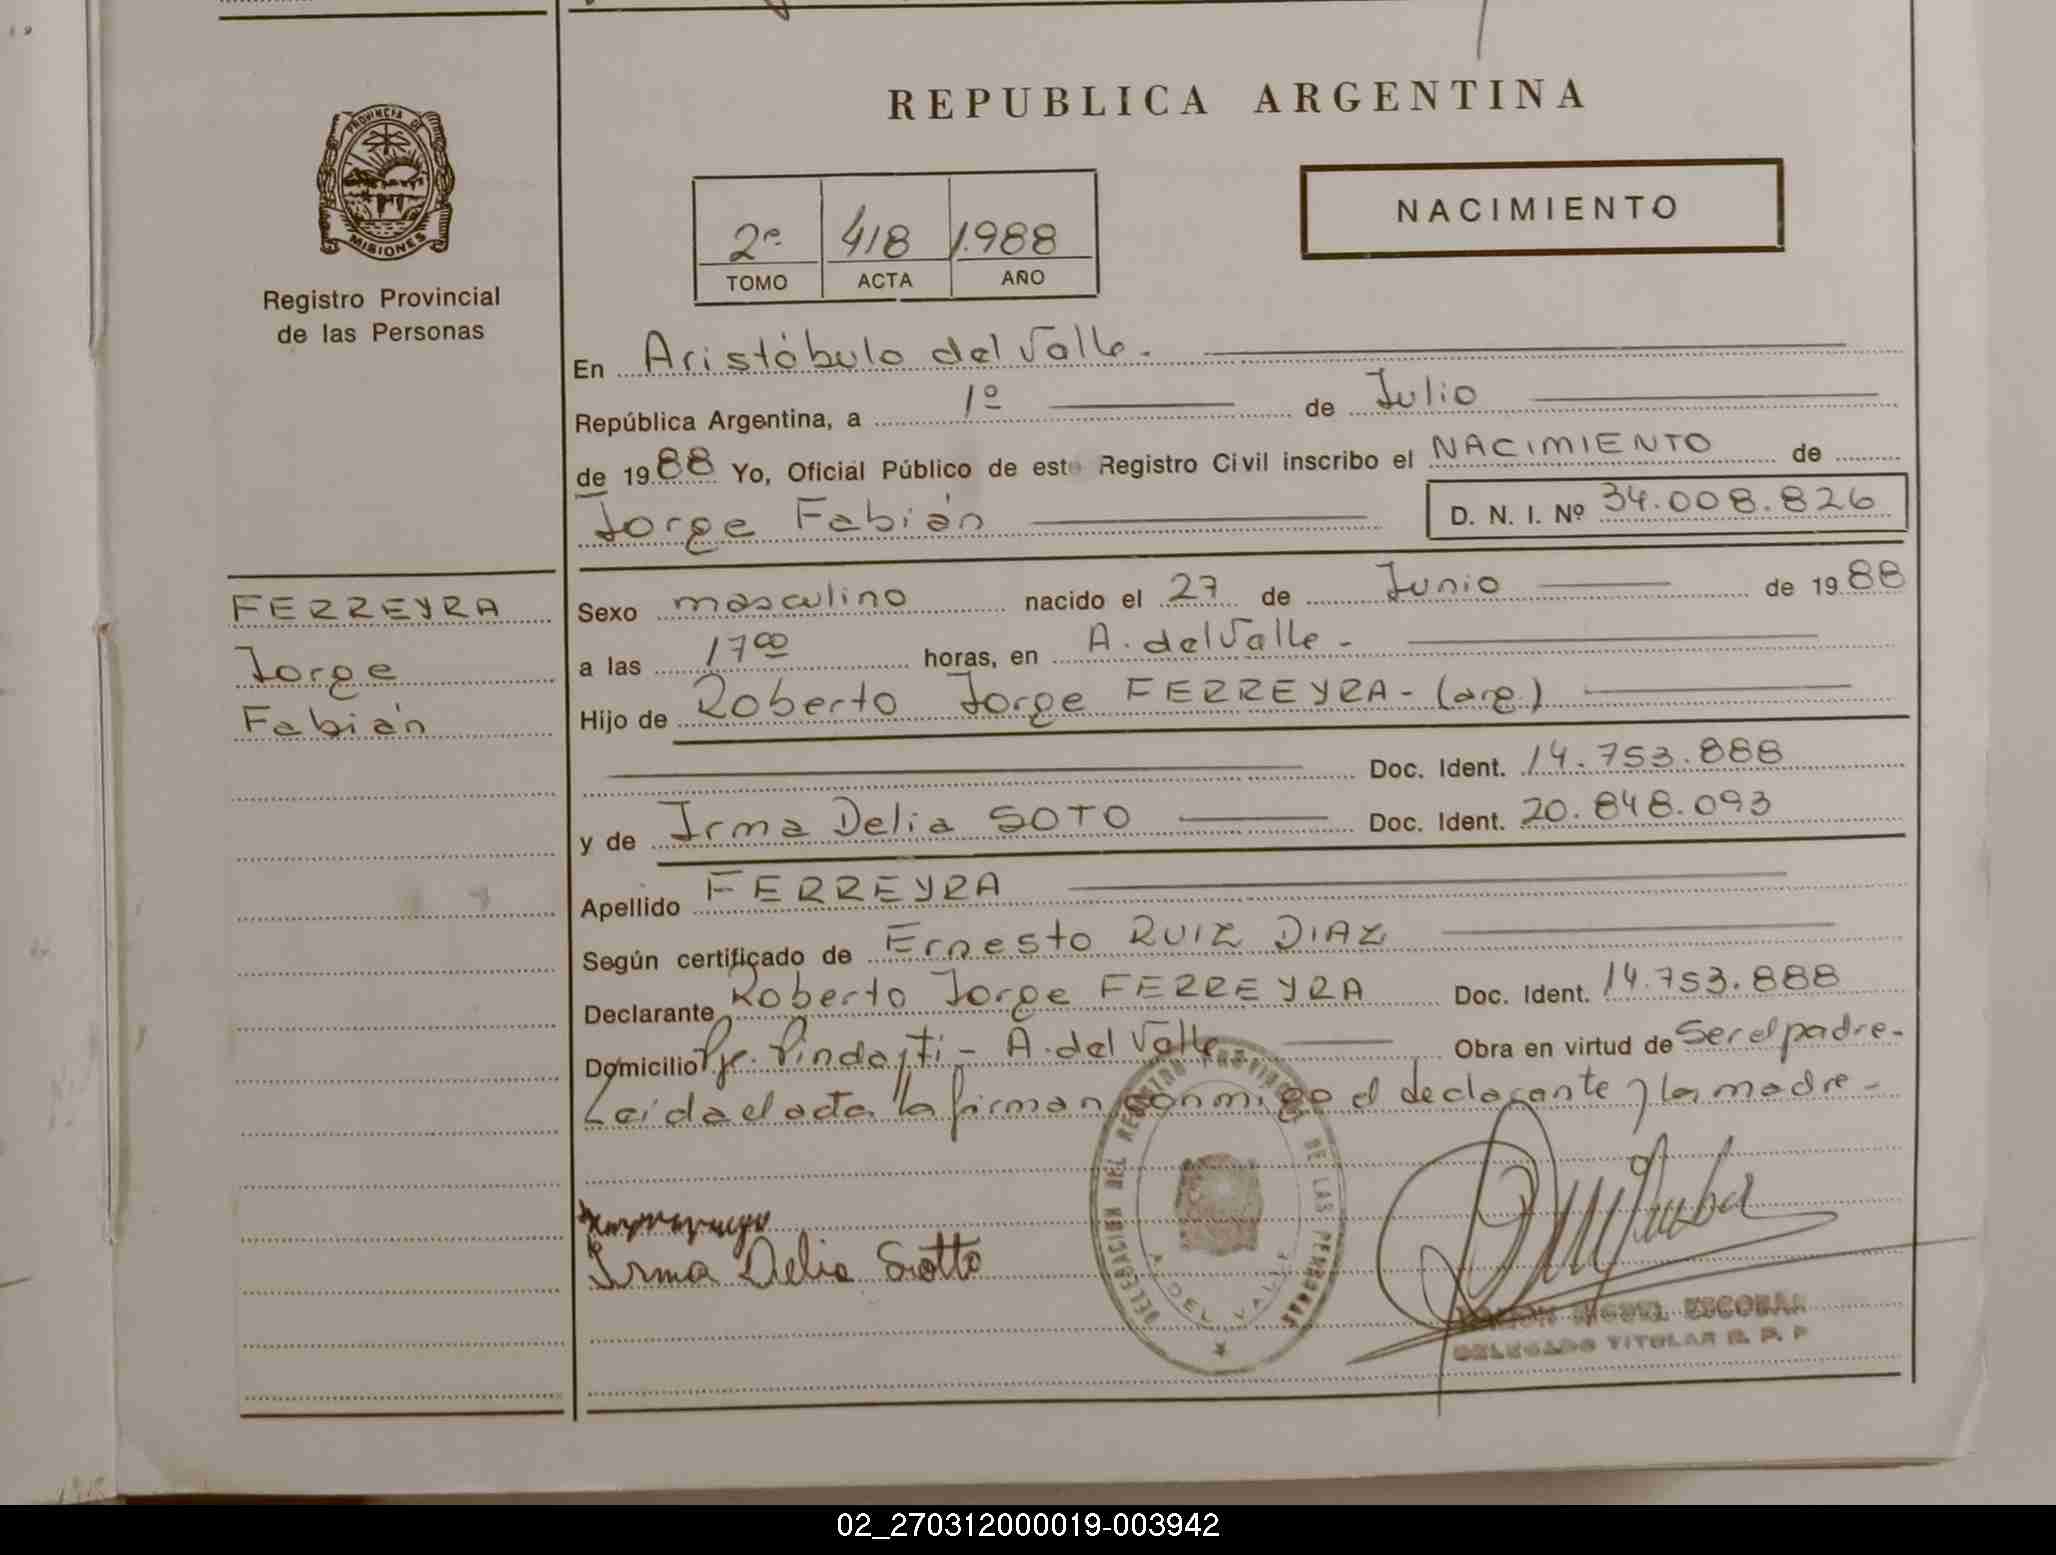 PROVINCIA DE
MISIONES
Registro Provincial
de las Personas
FERREYRA
Jorge
Fabián
REPUBLICA ARGENTINA
2º 418 1.988
TOMO ACTA AÑO
NACIMIENTO
En Aristóbulo del Valle.
República Argentina, a 1º de Julio
de 1988 Yo, Oficial Público de este Registro Civil inscribo el NACIMIENTO de
Jorge Fabián D. N. I. Nº 34.008.826
Sexo masculino nacido el 27 de Junio de 1988
a las 17 00 horas, en A. del Valle -
Hijo de Roberto Jorge FERREYRA - (arg.)
Doc. Ident. 14.753.888
y de Irma Delia SOTO Doc. Ident. 20.848.093
Apellido FERREYRA
Según certificado de Ernesto RUIZ DIAZ
Declarante Roberto Jorge FERREYRA Doc. Ident. 14.753.888
Domicilio Pje. - A. del Valle Obra en virtud de Ser el padre -
Leída el acta la firman conmigo el declarante y la madre -
DELEGACION DEL REGISTRO PROVINCIAL DE LAS PERSONAS
A. DEL VALLE
Irma Delia Sotto
MIGUEL ESCOBAR
DELEGADO TITULAR R. P. P
02_270312000019-003942